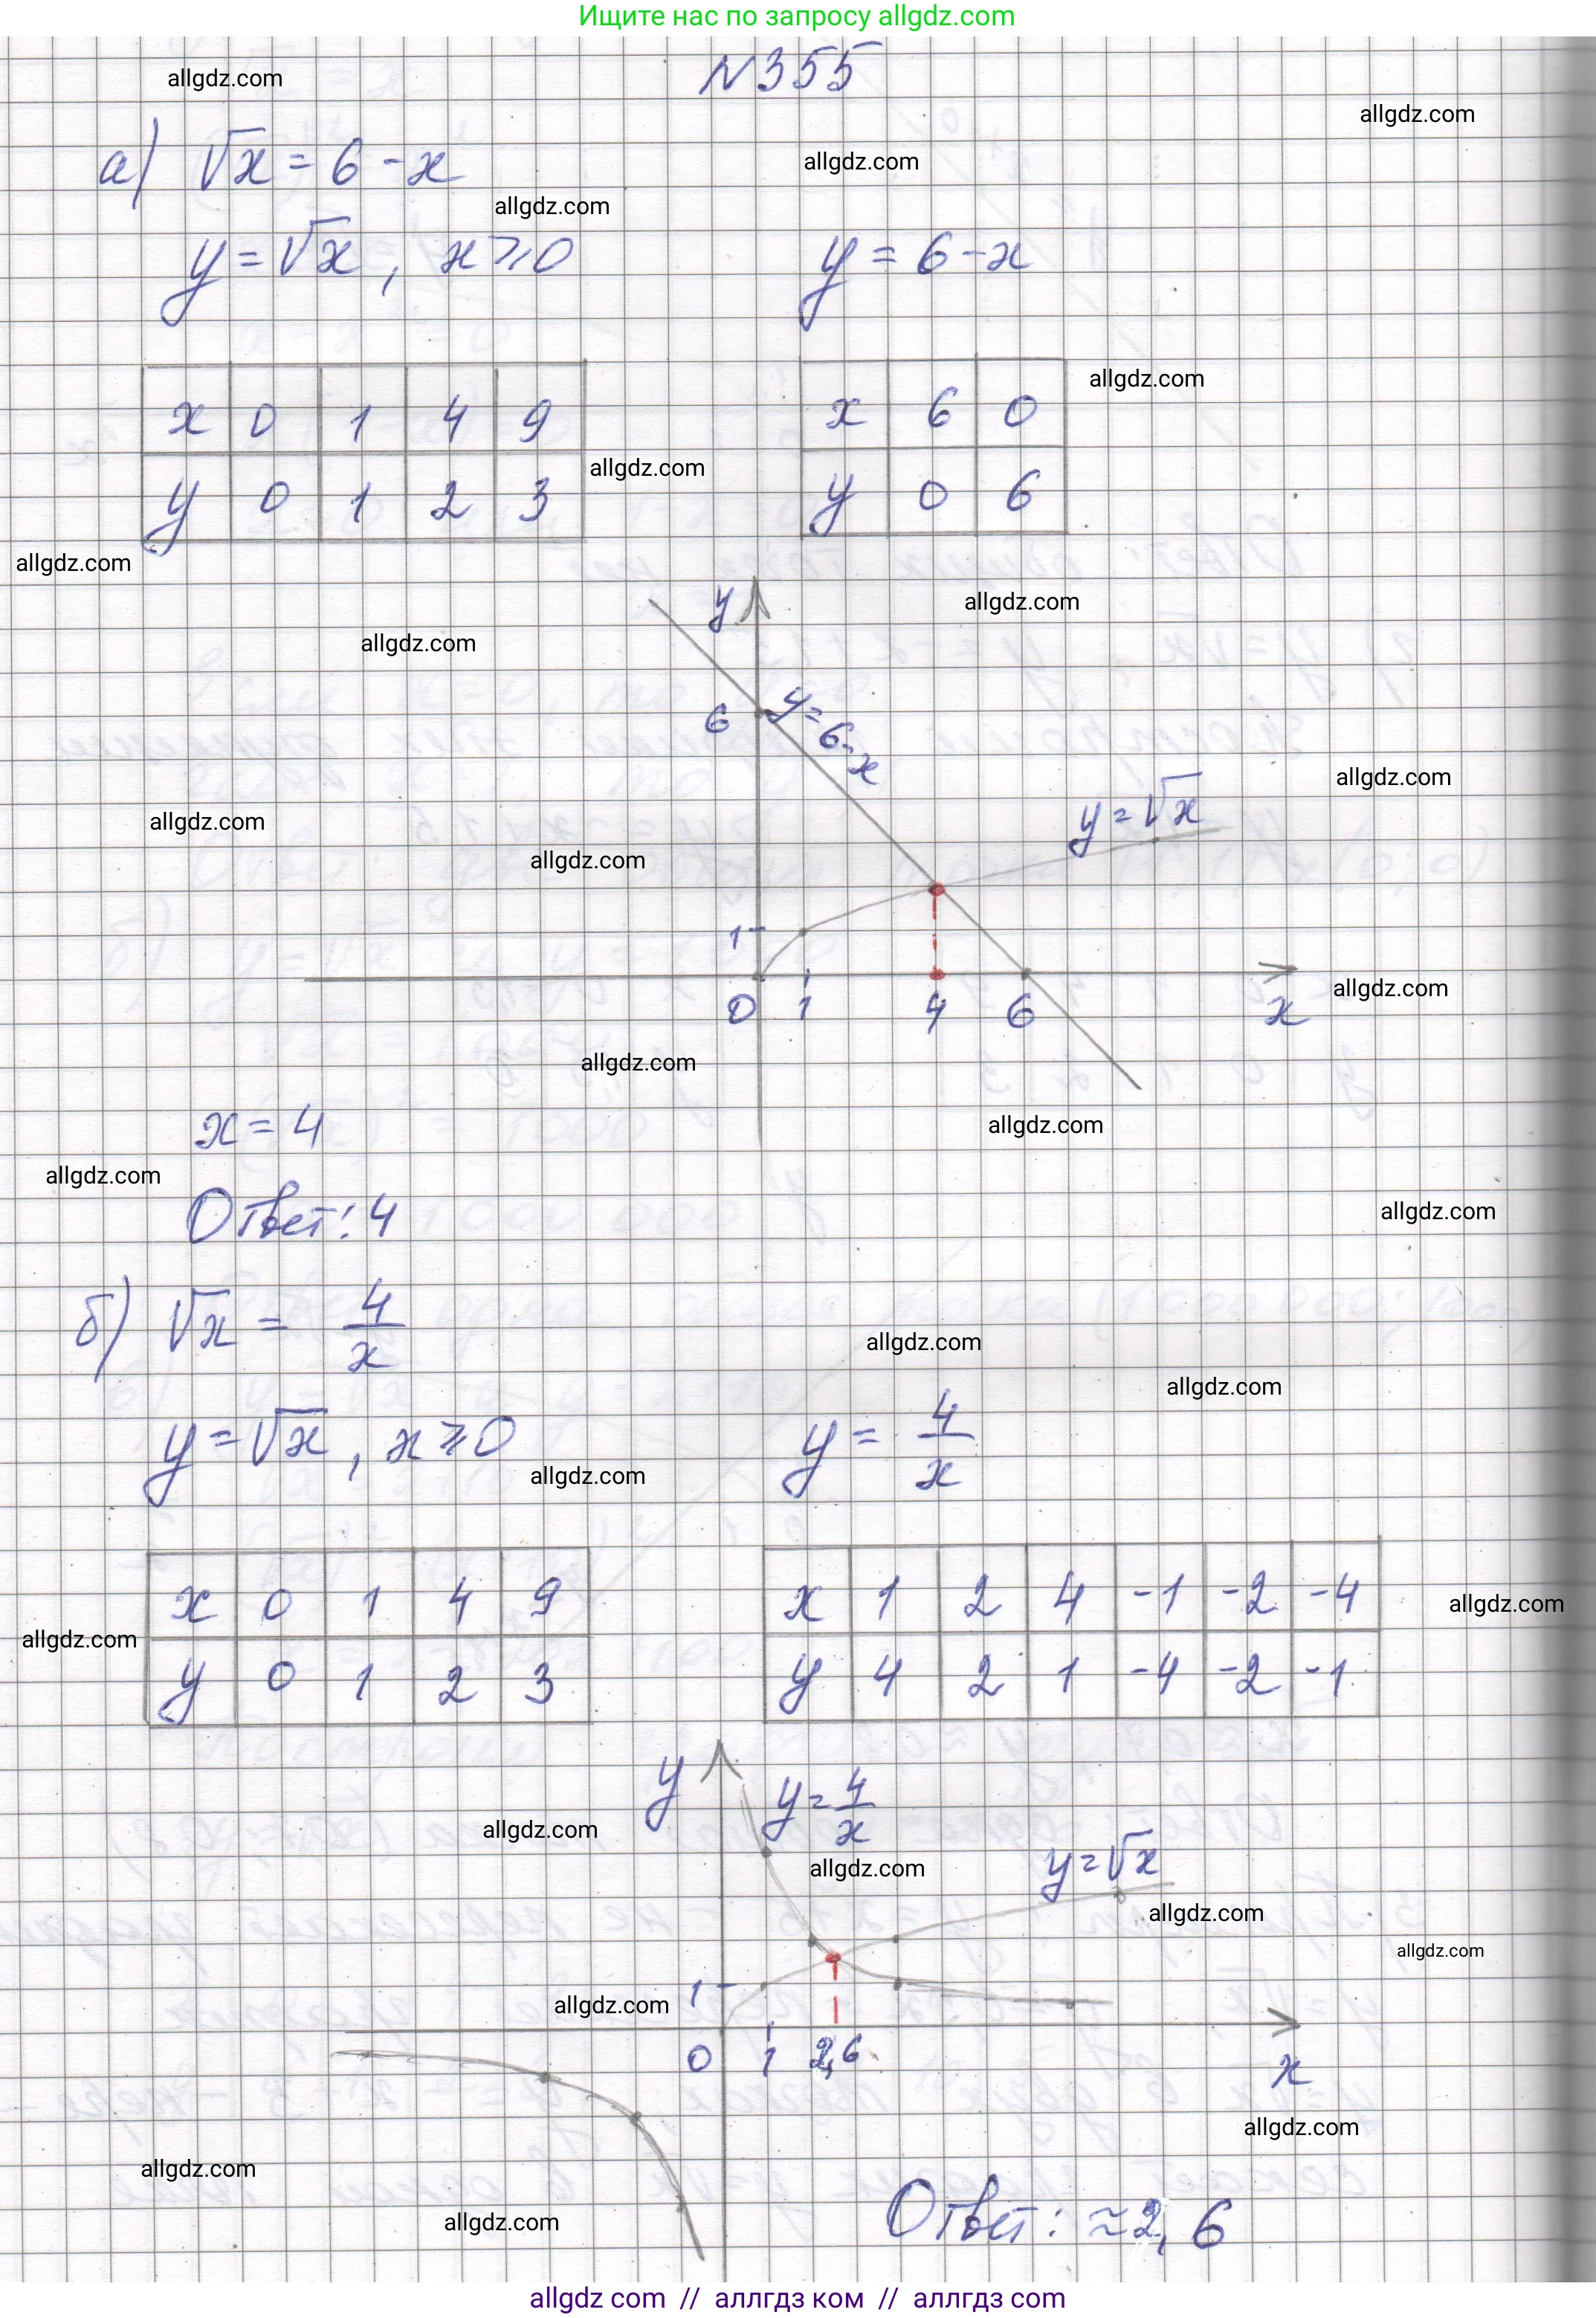 Ищите нас по запросу allgdz.com
№355
allgdz.com
allgdz.com
а) √x = 6 - x
allgdz.com
allgdz.com
y = √x, x ⩾ 0 y = 6 - x
allgdz.com
x 0 1 4 9 x 6 0
allgdz.com
y 0 1 2 3 y 0 6
allgdz.com
allgdz.com
y
allgdz.com
6
y = 6 - x
allgdz.com
y = √x
allgdz.com
allgdz.com
1
allgdz.com
0 1 4 6 x
allgdz.com
x = 4
allgdz.com
allgdz.com
Ответ: 4
allgdz.com
б) √x = 4/x
allgdz.com
allgdz.com
y = √x, x ⩾ 0 y = 4/x
allgdz.com
x 0 1 4 9 x 1 2 4 -1 -2 -4
allgdz.com
allgdz.com
y 0 1 2 3 y 4 2 1 -4 -2 -1
y
y = 4/x
allgdz.com
allgdz.com
y = √x
allgdz.com
allgdz.com
1
allgdz.com
0 1 2,6 x
allgdz.com
allgdz.com
allgdz.com
Ответ: ≈2,6
allgdz com // аллгдз ком // аллгдз com